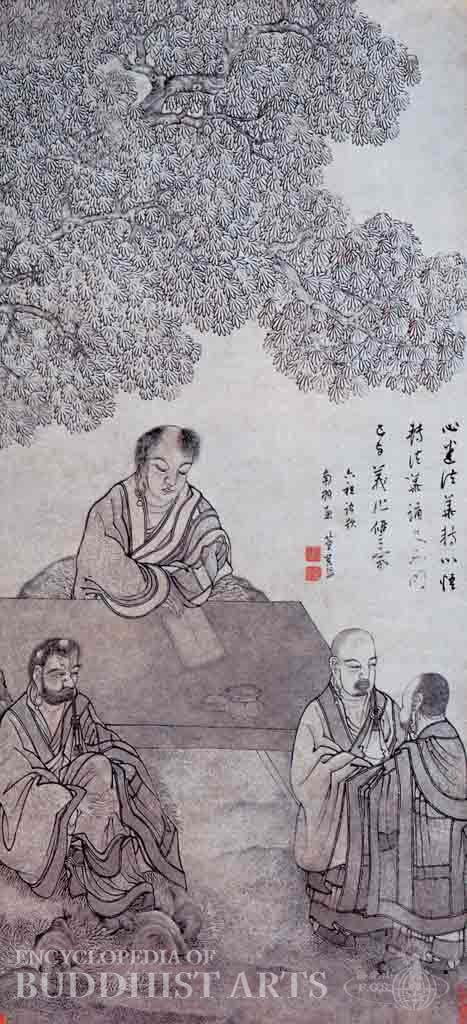 心迷法華轉心悟
轉法華誦久不明
己与義作讎家
六祖
南羽画 董其昌
ENCYCLOPEDIA OF
BUDDHIST ARTS